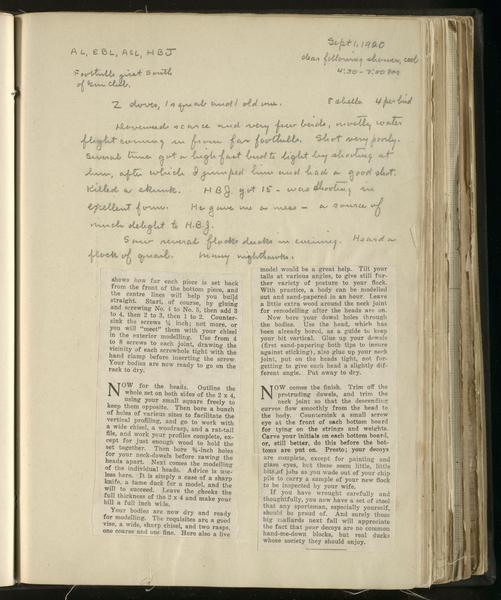 AL, EBL, ASL, HBJ
Sept 1, 1920
clear following shower, cool
4:30 - 7:00 PM
Foothills just South
of Gun Club.
2 doves, 1 squab and 1 old one. 8 shells 4 per bird
scarce and very few birds, mostly water
flight coming in from far foothills. Shot very poorly.
Several times got a high fast bird to light by shooting at
him, after which I jumped him and had a good shot.
Killed a skunk. HBJ. got 15 - was shooting in
excellent form. He gave me a mess - a source of
much delight to H.B.J.
Saw several flocks ducks in evening. Heard a
flock of quail. Many nighthawks.
shows how far each piece is set back
from the front of the bottom piece, and
the centre lines will help you build
straight. Start, of course, by gluing
and screwing No. 4 to No. 5, then add 3
to 4, then 2 to 3, then 1 to 2. Counter-
sink the screws ¼ inch; not more, or
you will "meet" them with your chisel
in the exterior modelling. Use from 4
to 8 screws to each joint, drawing the
vicinity of each screwhole tight with the
hand clamp before inserting the screw.
Your bodies are now ready to go on the
rack to dry.
NOW for the heads. Outline the
whole set on both sides of the 2 x 4,
using your small square freely to
keep them opposite. Then bore a bunch
of holes of various sizes to facilitate the
vertical profiling, and go to work with
a wide chisel, a woodrasp, and a rat-tail
file, and work your profiles complete, ex-
cept for just enough wood to hold the
set together. Then bore ¾-inch holes
for your neck-dowels before sawing the
heads apart. Next comes the modelling
of the individual heads. Advice is use-
less here. It is simply a case of a sharp
knife, a tame duck for a model, and the
will to succeed. Leave the cheeks the
full thickness of the 2 x 4 and make your
bill a full inch wide.
Your bodies are now dry and ready
for modelling. The requisites are a good
vise, a wide, sharp chisel, and two rasps,
one coarse and one fine. Here also a live
model would be a great help. Tilt your
tails at various angles, to give still fur-
ther variety of posture to your flock.
With practice, a body can be modelled
out and sand-papered in an hour. Leave
a little extra wood around the neck joint
for remodelling after the heads are on.
Now bore your dowel holes through
the bodies. Use the head, which has
been already bored, as a guide to keep
your bit vertical. Glue up your dowels
(first sand-papering both tips to insure
against sticking), also glue up your neck
joint, put on the heads tight, not for-
getting to give each head a slightly dif-
ferent angle. Put away to dry.
NOW comes the finish. Trim off the
protruding dowels, and trim the
neck joint so that the descending
curves flow smoothly from the head to
the body. Countersink a small screw
eye at the front of each bottom board
for tying on the strings and weights.
Carve your initials on each bottom board,
or, still better, do this before the bot-
toms are put on. Presto; your decoys
are complete, except for painting and
glass eyes, but these seem little, little
bits of jobs as you wade out of your chip
pile to carry a sample of your new flock
to be inspected by your wife.
If you have wrought carefully and
thoughtfully, you now have a set of stool
that any sportsman, especially yourself,
should be proud of. And surely those
big mallards next fall will appreciate
the fact that your decoys are no common
hand-me-down blocks, but real ducks
whose society they should enjoy.